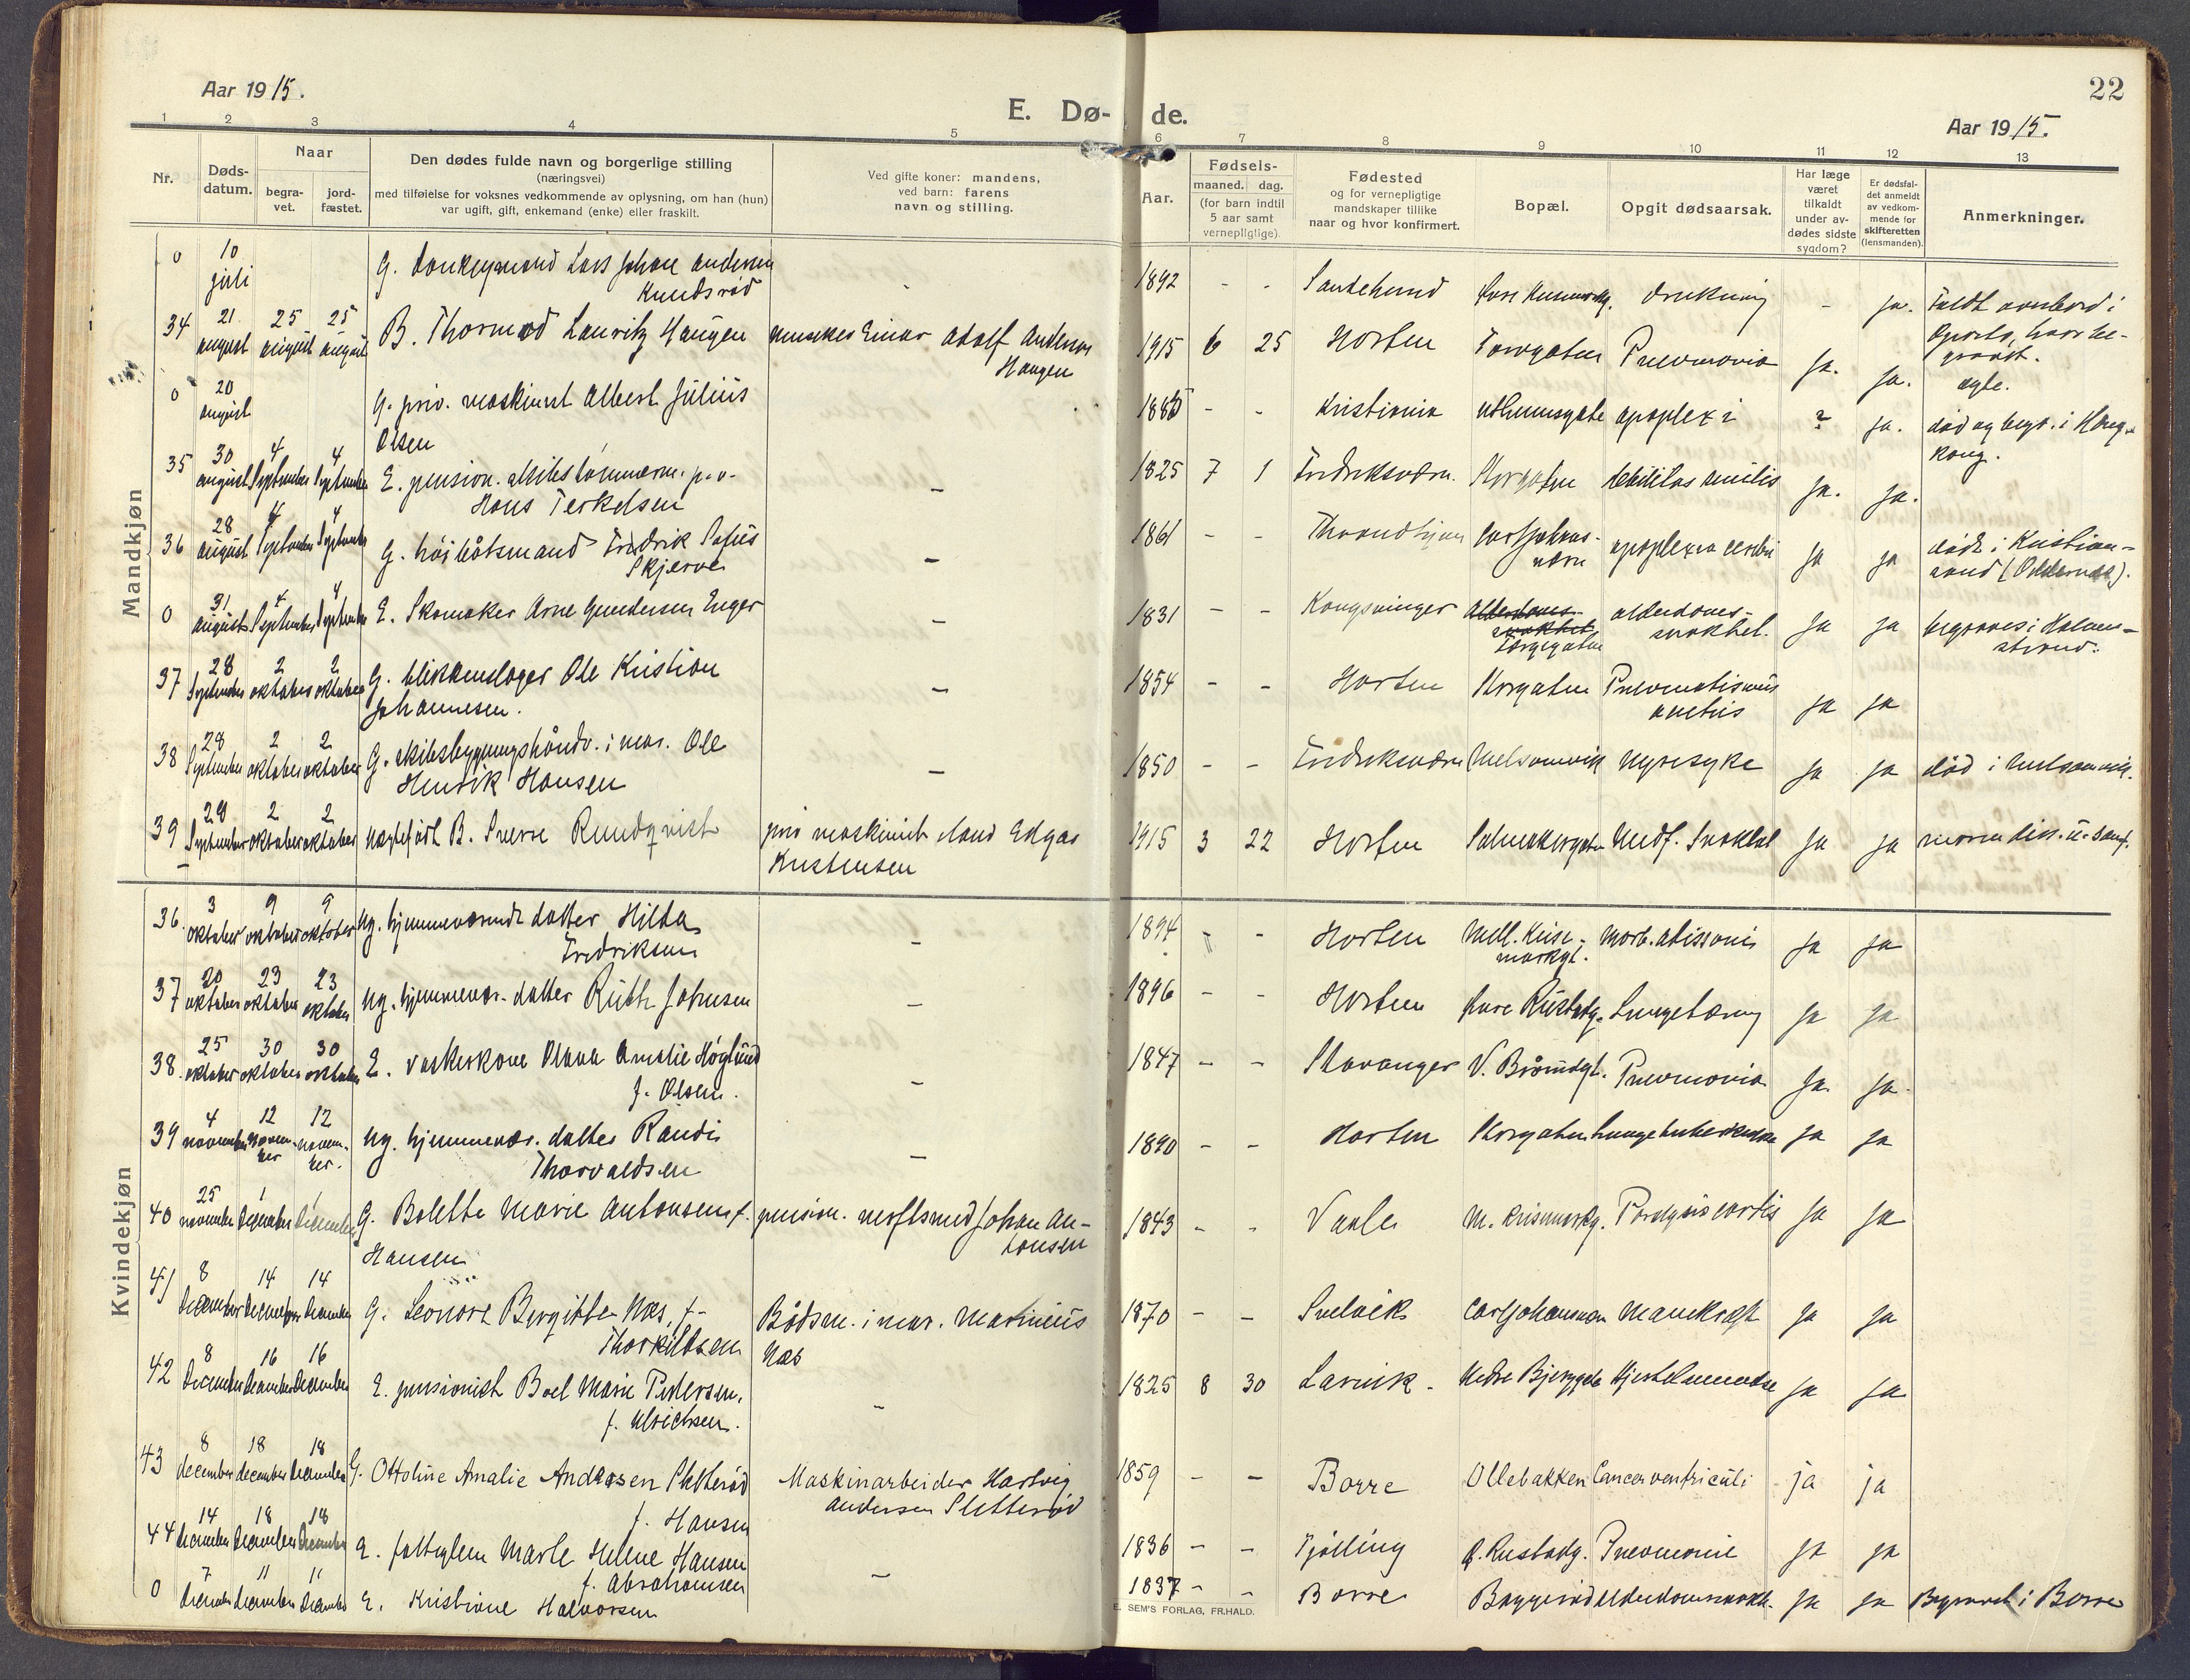 22
Aar 1915.
E. Dø-
de.
Aar 1915.
1 2 3 4 5 6 7 8 9 10 11 12 13
Nr.
Døds-
datum.
Naar
begra-
vet.
jord-
fæstet.
Den dødes fulde navn og borgerlige stilling
(næringsvei)
med tilføielse for voksnes vedkommende av oplysning, om han (hun)
var ugift, gift, enkemand (enke) eller fraskilt.
Ved gifte koner: mandens,
ved barn: farens
navn og stilling.
Aar.
Fødsels-
maaned. dag.
(for barn indtil
5 aar samt
vernepligtige).
Fødested
og for vernepligtige
mandskaper tillike
naar og hvor konfirmert.
Bopæl.
Opgit dødsaarsak.
Har læge
været
tilkaldt
under av-
dødes sidste
sygdom?
Er dødsfal-
det anmeldt
av vedkom-
mende for
skifteretten
(lensmanden).
Anmerkninger.
Mandkjøn
0 10 juli G. donkeymand Lars Johan Andersen
Knudsrød
- 1892 - - Sandehered drukning - ja. Faldt overbord i
hvor be-
gravet.
34 21 august 25 august 25 august B. Thormod Lauritz Haugen musiker Einar Adolf Andersen
Haugen
1915 6 25 Horten Torvgaten Pneumonia ja. ja. egte.
0 20 august G. priv. maskinist Albert Julius
Olsen
1885 - - Kristiania apoplexi ? ja. død og begr. i Hong-
kong.
35 30 august 4 September 4 September E. pension. skibstømmerm. p.v.
Hans Terkelsen
- 1825 7 1 Fredriksværn. Storgaten debilitas senilis ja. ja.
36 28 august 4 September 4 September G. høibåtsmand Fredrik Sofus
Skjerve
- 1861 - - Throndhjem Carljohans-
værn
apoplexia cerebri ja ja død i Kristian-
sand
0 31 august 4 September 4 September E. Skomaker Arne Gundersen Enger
- 1831 - - Kongsvinger Alderdoms-
svakhet
Torggaten
alderdoms-
svakhet. ja ja begraves i Holme-
strand.
37 28 September 2 oktober 2 oktober G. blikkenslager Ole Kristian
Johannesen.
- 1854 - - Horten Storgaten ja ja
38 28 September 2 oktober 2 oktober G. skibsbygningshåndv. i mar. Ole
Henrik Hansen
- 1850 - - Fredriksværn Melsomvik Nyresyke ja ja død i Melsomvik.
39 29 September 2 oktober 2 oktober uegtefødt B. Sverre Rundqvist priv maskinist Edgar
Kristensen
1915 3 22 Horten Salmakergaten Medf. Svakhet ja ja moren diss. u. samf.
Kvindekjøn
36. 3 oktober 9 oktober 9 oktober ug. hjemmeværende datter Hilda
Fredriksen
- 1894 - - Horten Mell. Keise-
markgt. Morb. adissoni ja ja
37 20 oktober 23 oktober 23 oktober ug. hjemmevær. datter Ruth Johnsen
- 1896 - - Horten Lungetæring ja ja
38. 25 oktober 30 oktober 30 oktober E. vaskekone Olava Amalie Høglund
f. Olsen.
- 1847 - - Stavanger V. Braarudgt. Pneumonia ja. ja.
39 4 november 12 novem-
ber 12 novem-
ber. ug. hjemmevær. datter Randi
Thorvaldsen
- 1890 - - Horten Storgaten Lungetuberkulose ja ja
40 25 november 1 December 1 December G. Bolette Marie Antonsen f.
Hansen
pension. verftsmed Johan An-
tonsen
1843 - - Vaale Paralysis cordis ja ja
41 8 December 14 December 14 December G. Leonore Bergitte Næs, f.
Thorkildsen
Båtsm. i mar. Marinius
Næs
1870 - - Svelvik Carljohansværn Mavekræft ja ja
42 8 December 16 December 16 December E. pensionist Boel Marie Pedersen,
f. Ulrichsen.
- 1825 8 30 Larvik. Nedre Bjerggate ja ja
43 8 december 18 december 18 December G. Ottoline Amalie Andersen Sletterød
f. Hansen
Maskinarbeider Hartvig
Andersen Sletterød
1859 - - Borre Ollebakken Cancer ventriculi ja ja
44 14 December 18 December 18 December E. fattiglem Marte Helene Hansen
f. Abrahamsen
- 1836 - - Tjølling Ø. Rustadg. Pneumonie ja ja
0 7 December 11 December 11 December E. Kristiane Halvorsen
1837 - - Borre Baggerød Alderdomssvakh. ja ja Begravet i Borre
E. SEM'S FORLAG, FR.HALD.